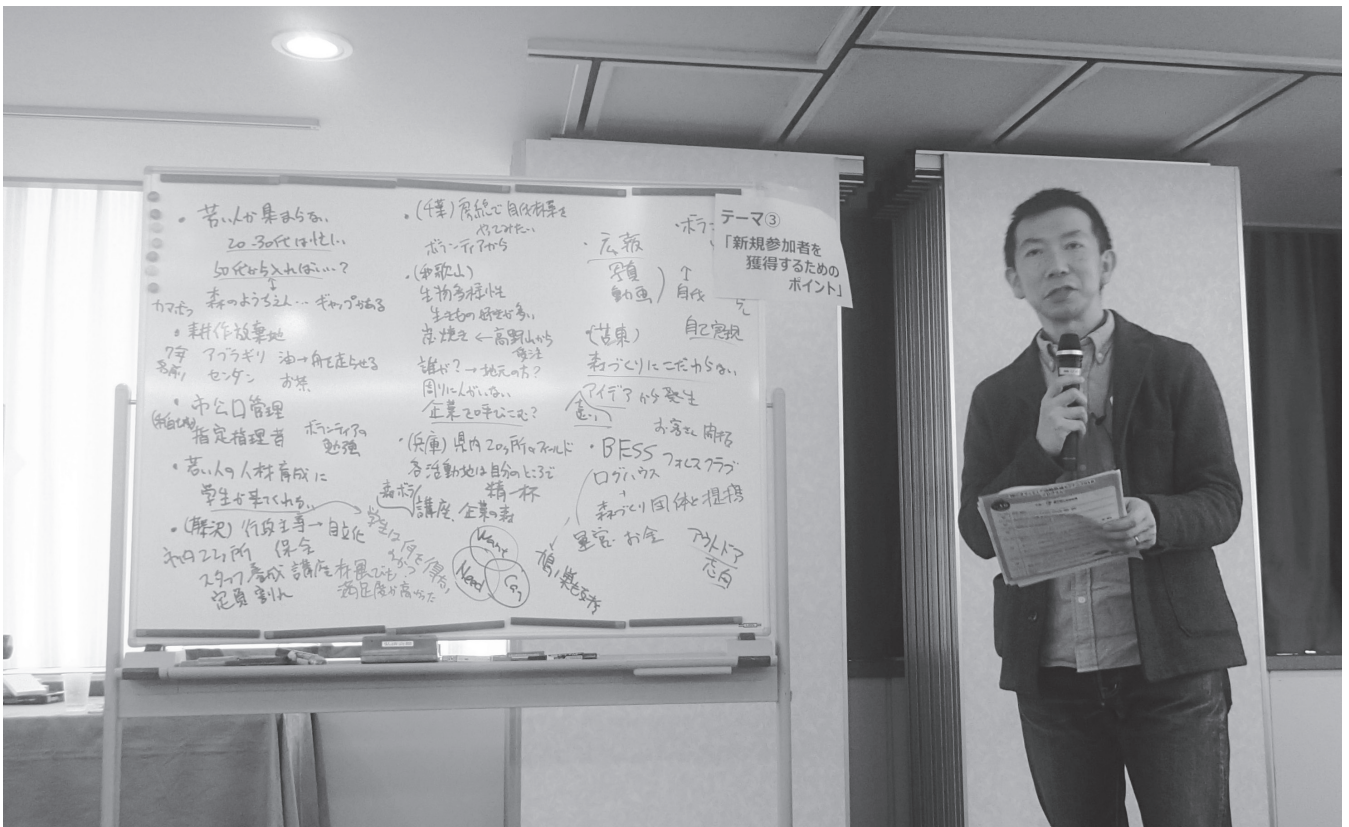 ・若い人が集まらない
20-30代は忙しい
50代から入ればいい?
↑
森のようちえん… ギャップがある
・耕作放棄地
アブラギリ 油→舟を走らせる
センダン お茶
・市公口管理
指定指理者 ボランティアの
勉強
・若い人の人材育成に
学生が来てくれる。
・(解決) 行政主導→自立化
スタッフ養成講座
定員割れ 満足度が高かった
学生は何を得た
・(千葉) 房総で自伐林業を
やってみたい
ボランティアから
・(和歌山)
生物多様性
生きもの好きが多い
炭焼き ← 高野山から
誰が?→地元の方?
周りに人がいない
企業で呼びこむ?
・(兵庫) 県内20ヶ所のフィールド
各活動地は自分のところで
精一杯
森ボラ講座、企業の森
Want
Need
Can
・広報
写真
動画
↑
自伐
自己実現
・(苫東)
森づくりにこだわらない
アイデアから発生
遠い
お客さん
・BESS フォレスクラブ
ログハウス
+
森づくり団体と提携
運営・お金
アウトドア
志向
テーマ③
「新規参加者を
獲得するための
ポイント」